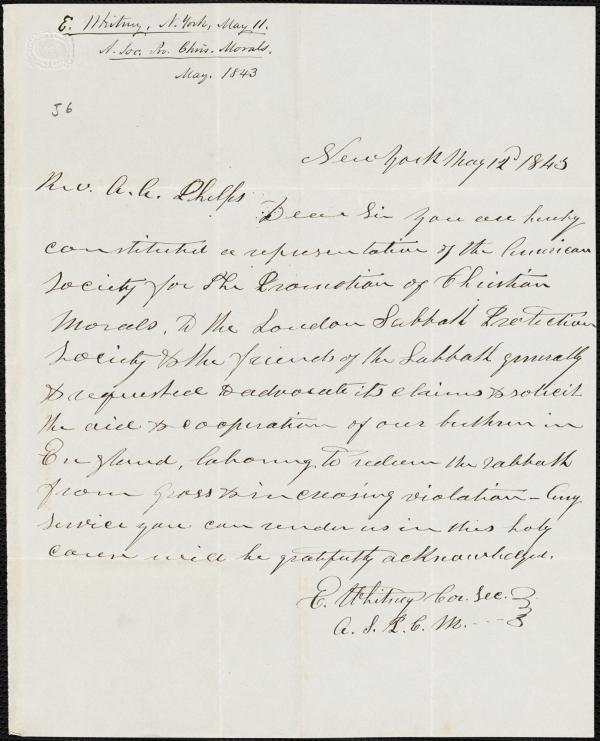 E. Whitney, N. York, May 11.
A. Soc. Pro. Chris. Morals.
May. 1843
56
New York May 12th 1843
Rev. A. A. Phelps
Dear Sir You are hereby
constituted a representation of the American
Society for The Promotion of Christian
Morals, To the London Sabbath Protection
Society & the friends of the Sabbath generally
& requested to advocate its claims & solicit
the aid & cooperation of our brethren in
England, laboring to redeem the Sabbath
from gross & increasing violation - Any
service you can render us in this holy
cause will be gratefully acknowledged.
E. Whitney Cor. Sec.
A. S. P. C. M.